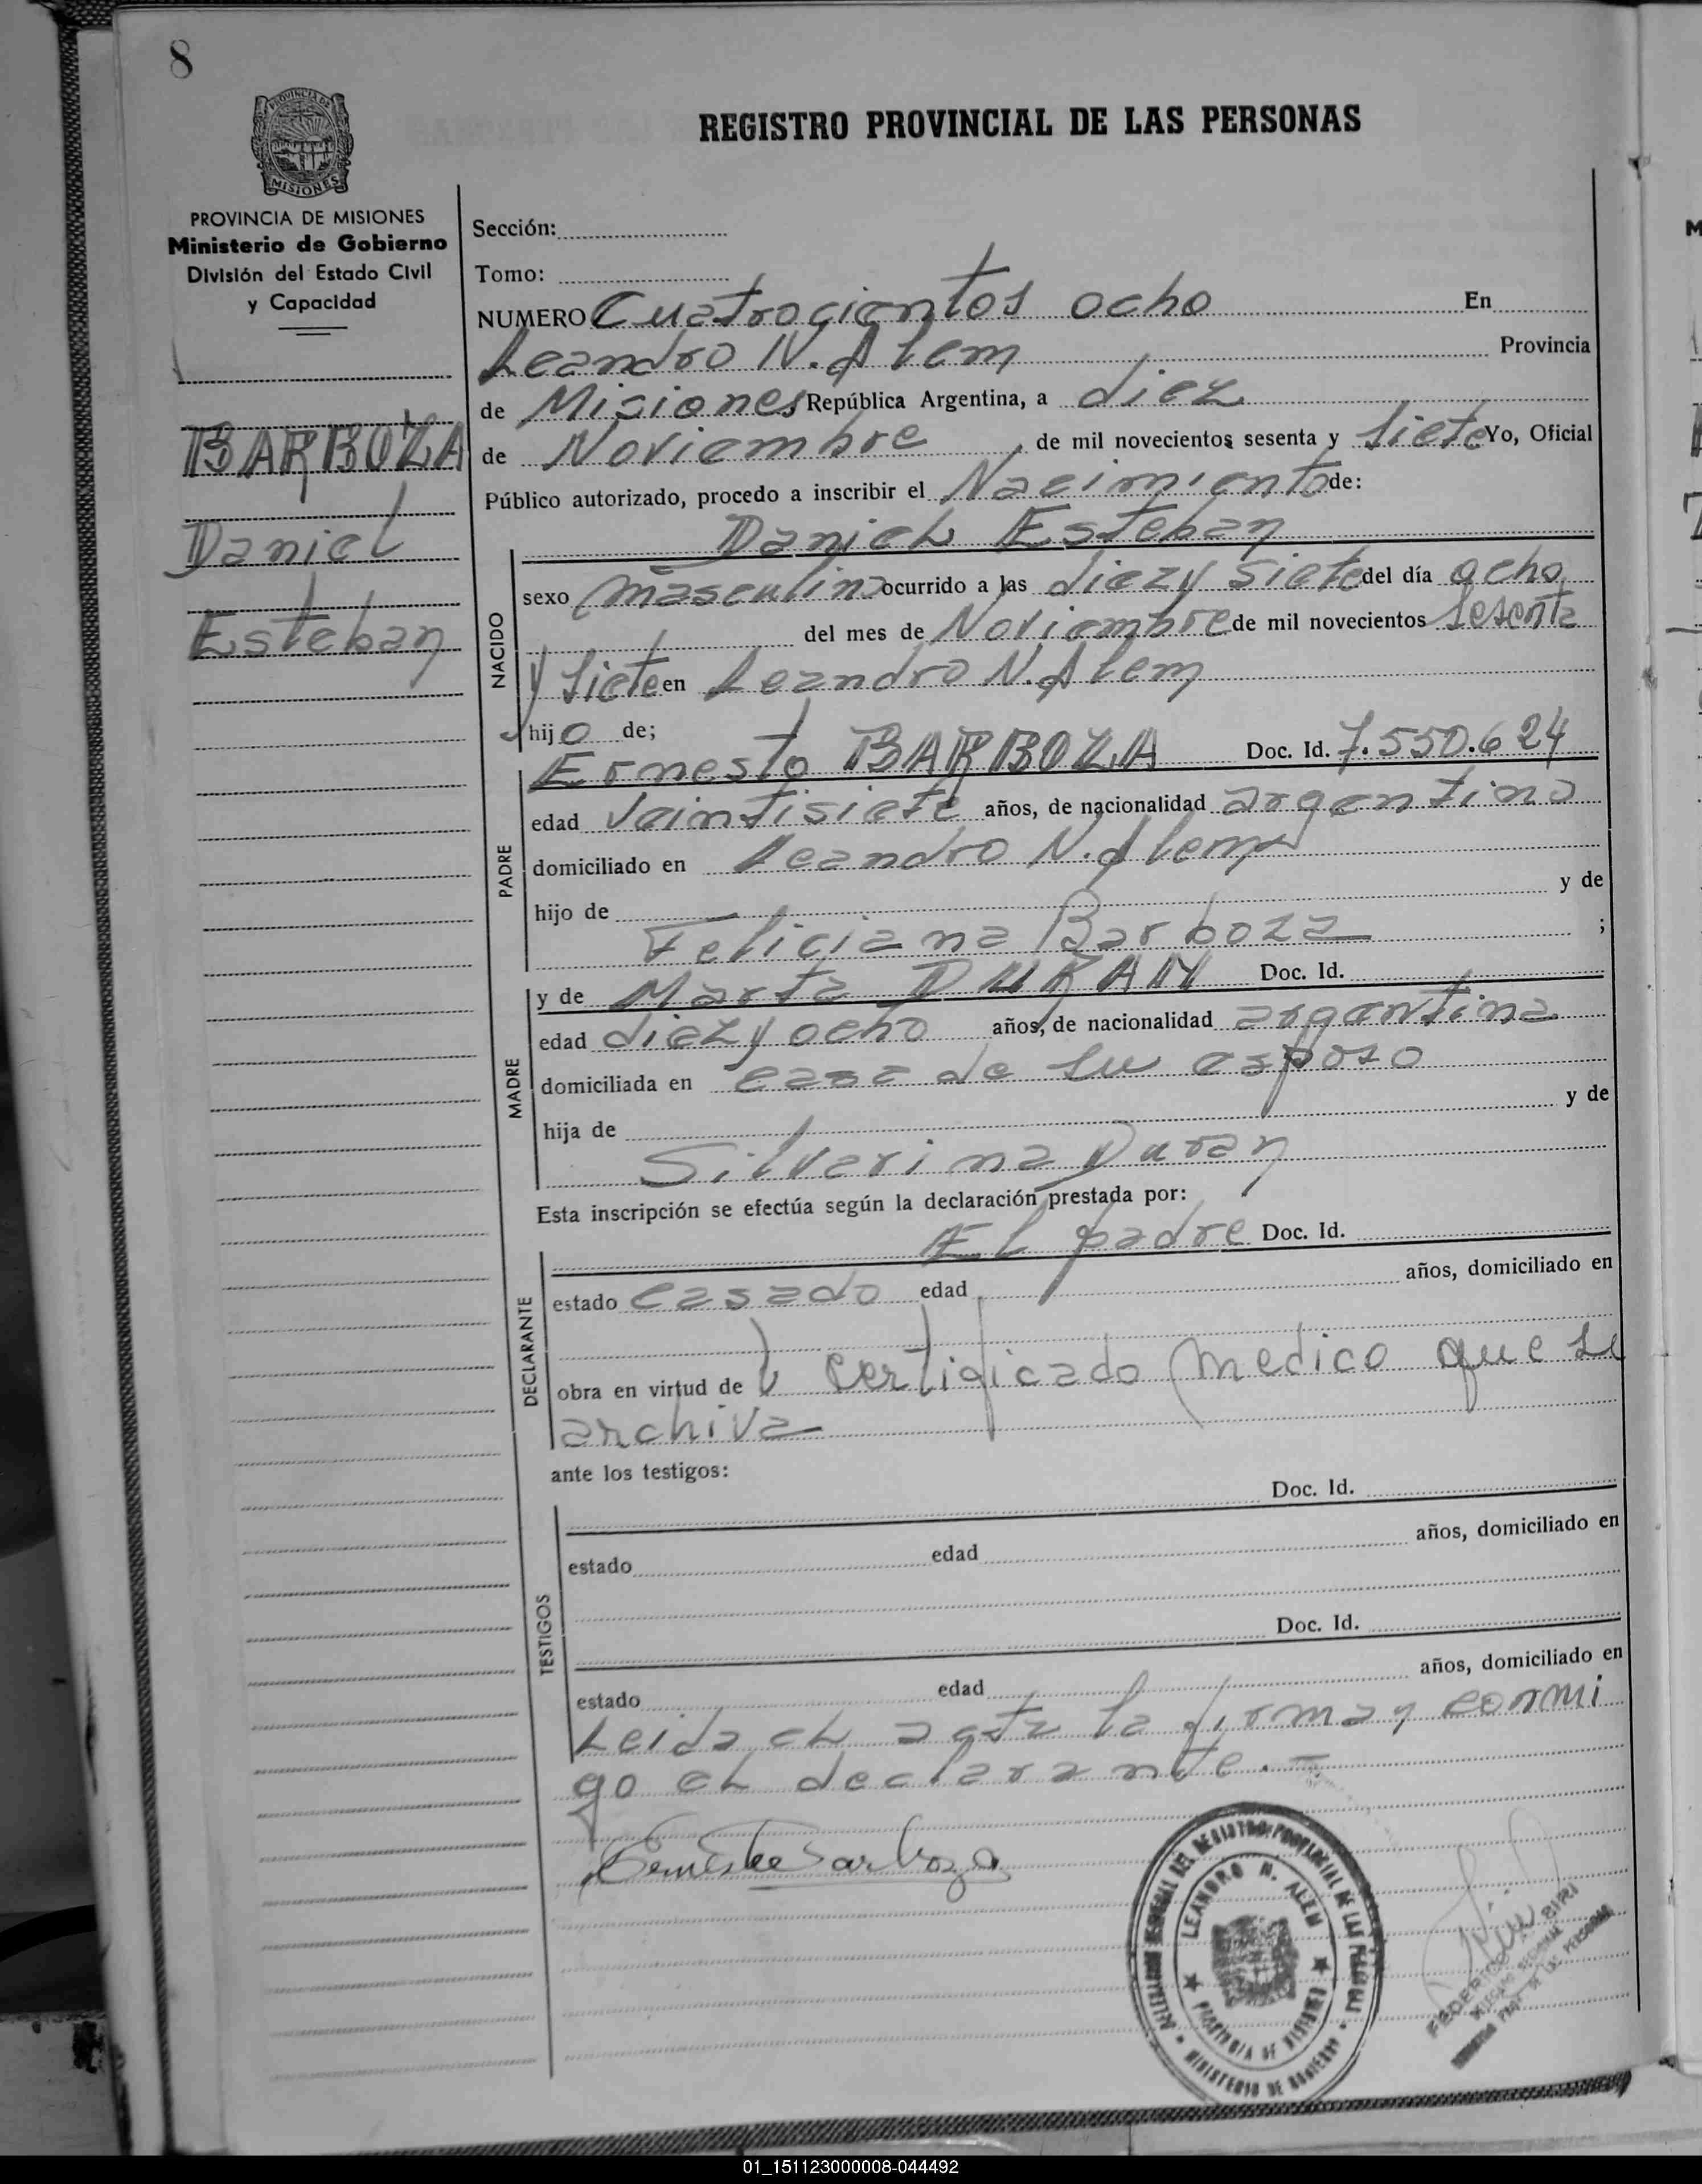 8
REGISTRO PROVINCIAL DE LAS PERSONAS
PROVINCIA DE MISIONES
MISIONES
PROVINCIA DE MISIONES
Ministerio de Gobierno
División del Estado Civil
y Capacidad
BARBOZA
Daniel
Esteban
Sección:
Tomo:
NUMERO Cuatrocientos ocho En
Leandro N. Alem Provincia
de Misiones República Argentina, a diez
de Noviembre de mil novecientos sesenta y siete Yo, Oficial
Público autorizado, procedo a inscribir el Nacimiento de:
Daniel Esteban
NACIDO
sexo masculino ocurrido a las diez y siete del día ocho
del mes de Noviembre de mil novecientos sesenta
y siete en Leandro N. Alem
hijo de;
PADRE
Ernesto BARBOZA Doc. Id. 7.550.624
edad veintisiete años, de nacionalidad argentino
domiciliado en Leandro N. Alem
hijo de y de
Feliciana Barboza ;
MADRE
y de Marta DURAN Doc. Id.
edad diez y ocho años, de nacionalidad argentina
domiciliada en casa de su esposo
hija de y de
Silverina Duran
Esta inscripción se efectúa según la declaración prestada por:
DECLARANTE
El padre Doc. Id.
estado casado edad años, domiciliado en
obra en virtud de certificado medico que se
archiva
ante los testigos:
TESTIGOS
Doc. Id.
estado edad años, domiciliado en
Doc. Id.
estado edad años, domiciliado en
Leida el acta la firma y conmi
go el declarante.=
Ernesto Barboza
DEL REGISTRO PROVINCIAL DE LAS PERSONAS
LEANDRO N. ALEM
PROVINCIA DE MISIONES
MINISTERIO DE GOBIERNO
FEDERICO BIRI
01_151123000008-044492